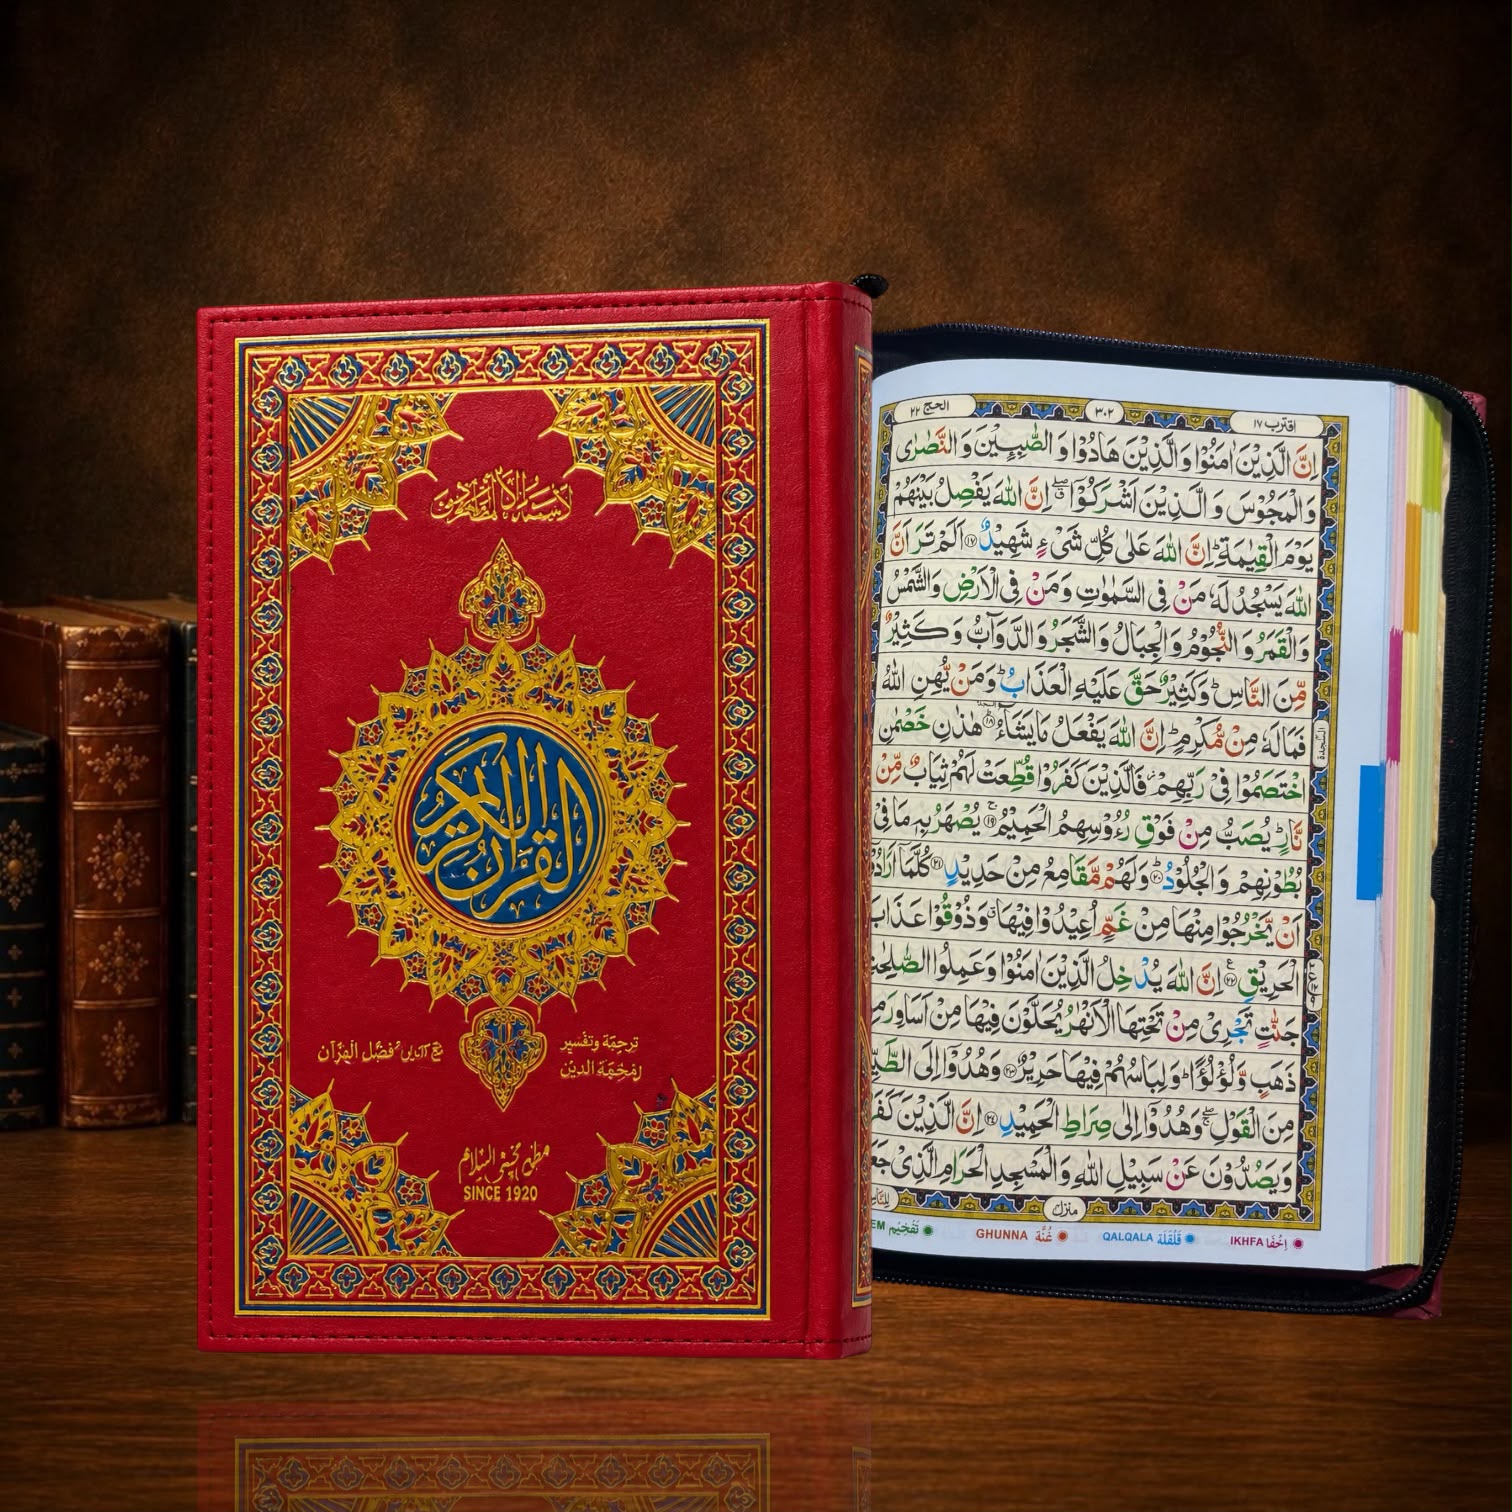 القرآن الكريم
ترجمة وتفسير
SINCE 1920
الحج ٢٢
٣٠٢
اقترب ١٧
اِنَّ الَّذِيْنَ اٰمَنُوْا وَالَّذِيْنَ هَادُوْا وَ الصّٰبِـِٕيْنَ وَ النَّصٰرٰى
وَالْمَجُوْسَ وَ الَّذِيْنَ اَشْرَكُوْۤا ۖۗ اِنَّ اللّٰهَ يَفْصِلُ بَيْنَهُمْ
يَوْمَ الْقِيٰمَةِ ؕ اِنَّ اللّٰهَ عَلٰى كُلِّ شَیْءٍ شَهِيْدٌ ۱۷ اَلَمْ تَرَ اَنَّ
اللّٰهَ يَسْجُدُ لَهٗ مَنْ فِی السَّمٰوٰتِ وَ مَنْ فِی الْاَرْضِ وَالشَّمْسُ
وَ الْقَمَرُ وَ النُّجُوْمُ وَ الْجِبَالُ وَ الشَّجَرُ وَ الدَّوَآبُّ وَ كَثِيْرٌ
مِّنَ النَّاسِ ؕ وَكَثِيْرٌ حَقَّ عَلَيْهِ الْعَذَابُ ؕ وَمَنْ يُّهِنِ اللّٰهُ
فَمَا لَهٗ مِنْ مُّكْرِمٍ ؕ اِنَّ اللّٰهَ يَفْعَلُ مَا يَشَآءُ ۱۸ هٰذٰنِ خَصْمٰنِ
اخْتَصَمُوْا فِیْ رَبِّهِمْ ؗ فَالَّذِيْنَ كَفَرُوْا قُطِّعَتْ لَهُمْ ثِيَابٌ مِّنْ
نَّارٍ ؕ يُصَبُّ مِنْ فَوْقِ رُءُوْسِهِمُ الْحَمِيْمُ ۱۹ يُصْهَرُ بِهٖ مَا فِیْ
بُطُوْنِهِمْ وَ الْجُلُوْدُ ؕ ۲۰ وَلَهُمْ مَّقَامِعُ مِنْ حَدِيْدٍ ۲۱ كُلَّمَاۤ
اَنْ يَّخْرُجُوْا مِنْهَا مِنْ غَمٍّ اُعِيْدُوْا فِيْهَا ۗ وَذُوْقُوْا عَذَابَ
الْحَرِيْقِ ۲۲ اِنَّ اللّٰهَ يُدْخِلُ الَّذِيْنَ اٰمَنُوْا وَعَمِلُوا
جَنّٰتٍ تَجْرِیْ مِنْ تَحْتِهَا الْاَنْهٰرُ يُحَلَّوْنَ فِيْهَا مِنْ اَسَاوِرَ
ذَهَبٍ وَّ لُؤْلُؤًا ؕ وَلِبَاسُهُمْ فِيْهَا حَرِيْرٌ ۲۳ وَهُدُوْۤا اِلَى
مِنَ الْقَوْلِ ۖۚ وَهُدُوْۤا اِلٰى صِرَاطِ الْحَمِيْدِ ۲۴ اِنَّ الَّذِيْنَ
وَيَصُدُّوْنَ عَنْ سَبِيْلِ اللّٰهِ وَالْمَسْجِدِ الْحَرَامِ الَّذِیْ
منزل
تَفْخِيْم
GHUNNA غُنَّة
QALQALA قَلْقَلَة
IKHFA اِخْفَا